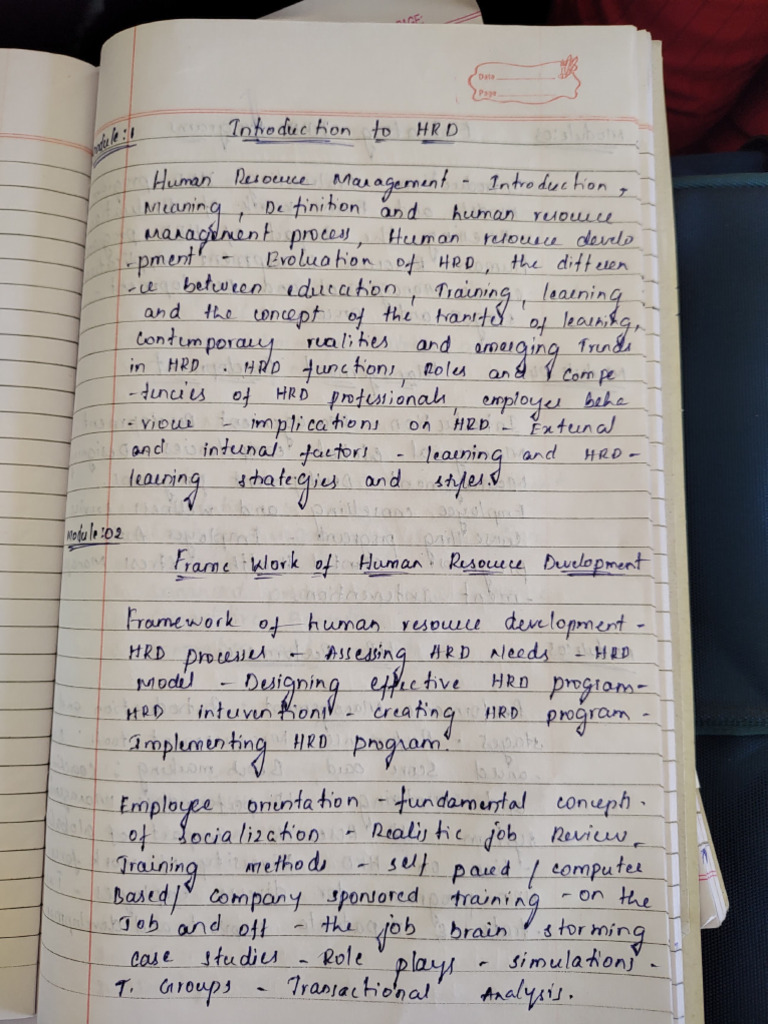 PAGE:
Date
Page
Module:1
Introduction to HRD
Human Resource Management - Introduction,
Meaning, Definition and human resource
management process, Human resource develo
-pment - Evoluation of HRD, the differen
-ce between education, Training, learning
and the concept of the transfer of learning,
contemporary realities and emerging Trends
in HRD. HRD functions, Roles and compe
-tencies of HRD professionals, employee beha
-viour - implications on HRD - External
and internal factors - learning and HRD -
learning strategies and styles.
Module:02
Frame Work of Human Resource Development
Framework of human resource development -
HRD processes - Assessing HRD Needs - HRD
Model - Designing effective HRD program-
HRD interventions - creating HRD program -
Implementing HRD program.
Employee orientation - fundamental concepts.
of socialization - Realistic job Review,
Training methods - self paced / computer
Based/ company sponsored training - on the
Job and off - the job brain storming
case studies - Role plays - simulations -
T. Groups - Transactional Analysis.